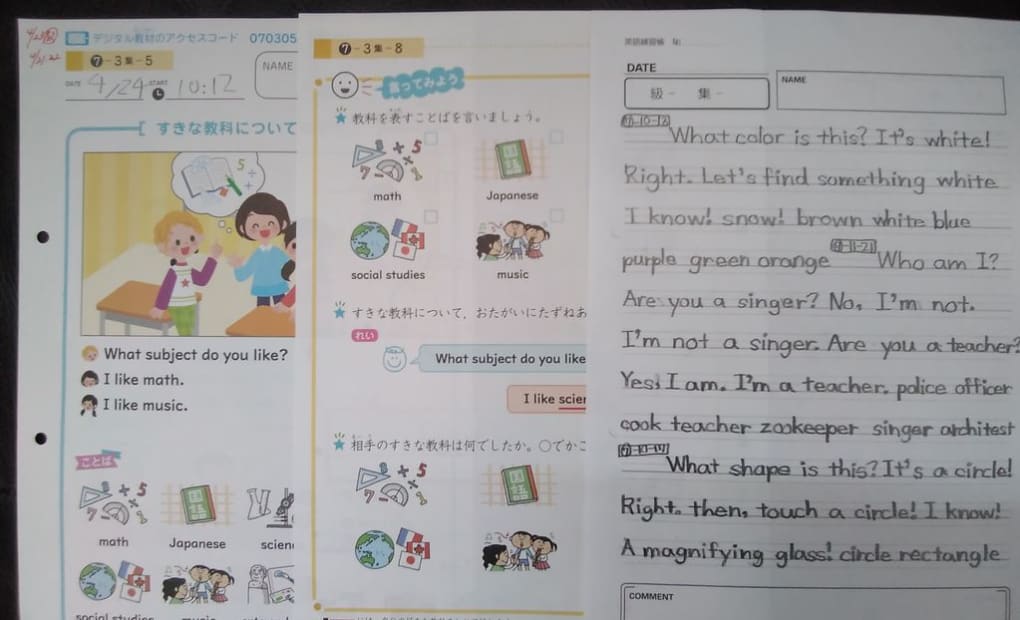 デジタル教材のアクセスコード 070305
❼-3集-5
DATE 4/24 START 10:12
NAME
すきな教科について
5
What subject do you like?
I like math.
I like music.
ことば
math Japanese scien
social studies music
❼-3集-8
言ってみよう
教科を表すことばを言いましょう。
math Japanese
social studies music
すきな教科について，おたがいにたずねあ
れい
What subject do you like
I like scien
相手のすきな教科は何でしたか。○でかこ
国語
英語練習帳
DATE
級- 集-
NAME
What color is this? It's white!
Right. Let's find something white
I know! snow! brown white blue
purple green orange Who am I?
Are you a singer? No, I'm not.
I'm not a singer. Are you a teacher?
Yes, I am. I'm a teacher. police officer
cook teacher zookeeper singer architest
What shape is this? It's a circle!
Right. then, touch a circle! I know!
A magnifying glass! circle rectangle
COMMENT